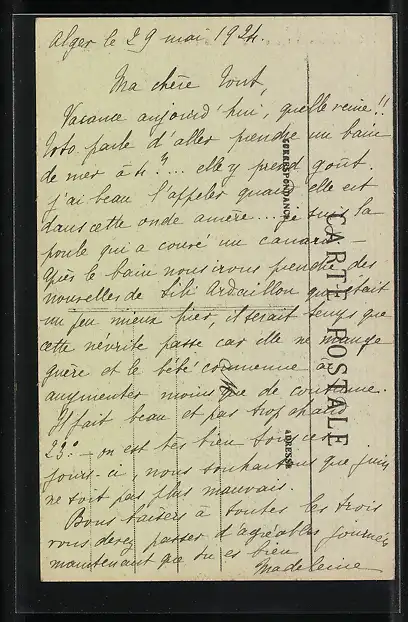 Alger le 29 mai 1924.
Ma chère
Vacance aujourd'hui, quelle veine!!
parle d'aller prendre un bain
de mer à 4h.... elle y prend goût.
j'ai beau l'appeler quand elle est
dans cette onde amère.... je suis la
poule qui a couvé un canard –
Après le bain nous irons prendre des
nouvelles de Lili Ardaillon qui était
un peu mieux hier, il serait temps que
cette névrite passe car elle ne mange
guère et le bébé commence à
augmenter moins que de coutume.
Il fait beau et pas trop chaud
23° – on est très bien tous ces
jours-ci, nous souhaitons que juin
ne soit pas plus mauvais.
Bons baisers à toutes les trois
vous devez passer d'agréables journées
maintenant que tu es bien
Madeleine
CORRESPONDANCE
CARTE POSTALE
ADRESSE